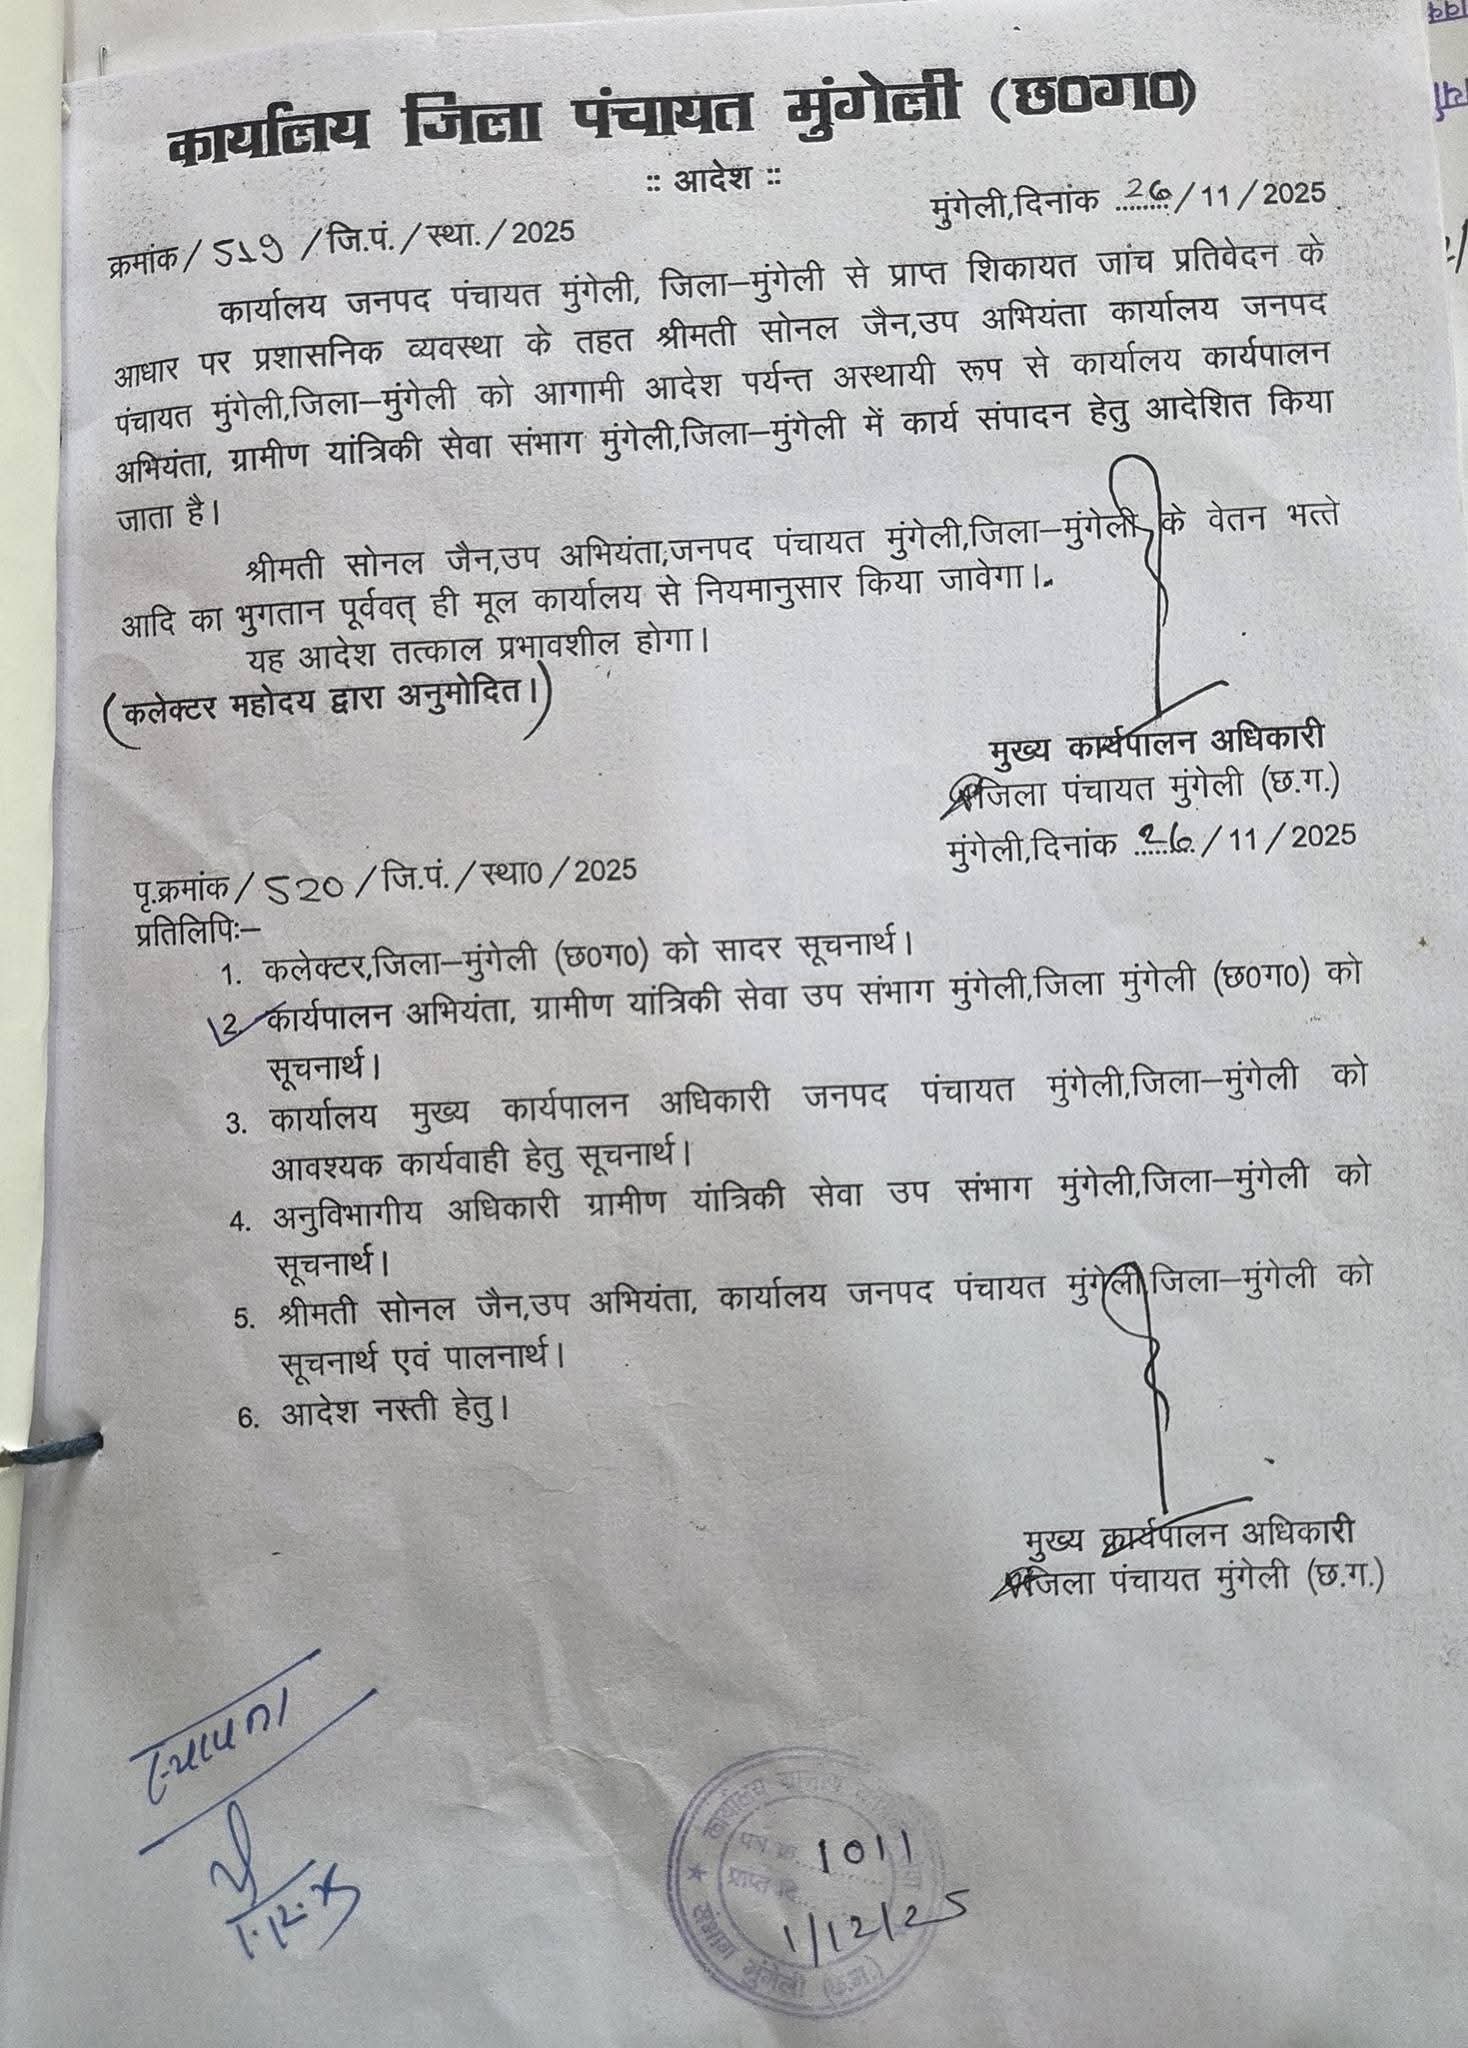 कार्यालय जिला पंचायत मुंगेली (छ0ग0)
:: आदेश ::
मुंगेली,दिनांक 26/11/2025
क्रमांक/519/जि.पं./स्था./2025
कार्यालय जनपद पंचायत मुंगेली, जिला–मुंगेली से प्राप्त शिकायत जांच प्रतिवेदन के
आधार पर प्रशासनिक व्यवस्था के तहत श्रीमती सोनल जैन,उप अभियंता कार्यालय जनपद
पंचायत मुंगेली,जिला–मुंगेली को आगामी आदेश पर्यन्त अस्थायी रूप से कार्यालय कार्यपालन
अभियंता, ग्रामीण यांत्रिकी सेवा संभाग मुंगेली,जिला–मुंगेली में कार्य संपादन हेतु आदेशित किया
जाता है।
श्रीमती सोनल जैन,उप अभियंता,जनपद पंचायत मुंगेली,जिला–मुंगेली के वेतन भत्ते
आदि का भुगतान पूर्ववत् ही मूल कार्यालय से नियमानुसार किया जावेगा।
यह आदेश तत्काल प्रभावशील होगा।
(कलेक्टर महोदय द्वारा अनुमोदित।)
मुख्य कार्यपालन अधिकारी
जिला पंचायत मुंगेली (छ.ग.)
मुंगेली,दिनांक 26/11/2025
पृ.क्रमांक/520/जि.पं./स्था0/2025
प्रतिलिपिः–
1. कलेक्टर,जिला–मुंगेली (छ0ग0) को सादर सूचनार्थ।
2. कार्यपालन अभियंता, ग्रामीण यांत्रिकी सेवा उप संभाग मुंगेली,जिला मुंगेली (छ0ग0) को
सूचनार्थ।
3. कार्यालय मुख्य कार्यपालन अधिकारी जनपद पंचायत मुंगेली,जिला–मुंगेली को
आवश्यक कार्यवाही हेतु सूचनार्थ।
4. अनुविभागीय अधिकारी ग्रामीण यांत्रिकी सेवा उप संभाग मुंगेली,जिला–मुंगेली को
सूचनार्थ।
5. श्रीमती सोनल जैन,उप अभियंता, कार्यालय जनपद पंचायत मुंगेली,जिला–मुंगेली को
सूचनार्थ एवं पालनार्थ।
6. आदेश नस्ती हेतु।
मुख्य कार्यपालन अधिकारी
जिला पंचायत मुंगेली (छ.ग.)
स्थापना
1.12.25
कार्यालय
पत्र क्र. 1011
प्राप्त दि. 1/12/25
संभाग मुंगेली (छ.ग.)